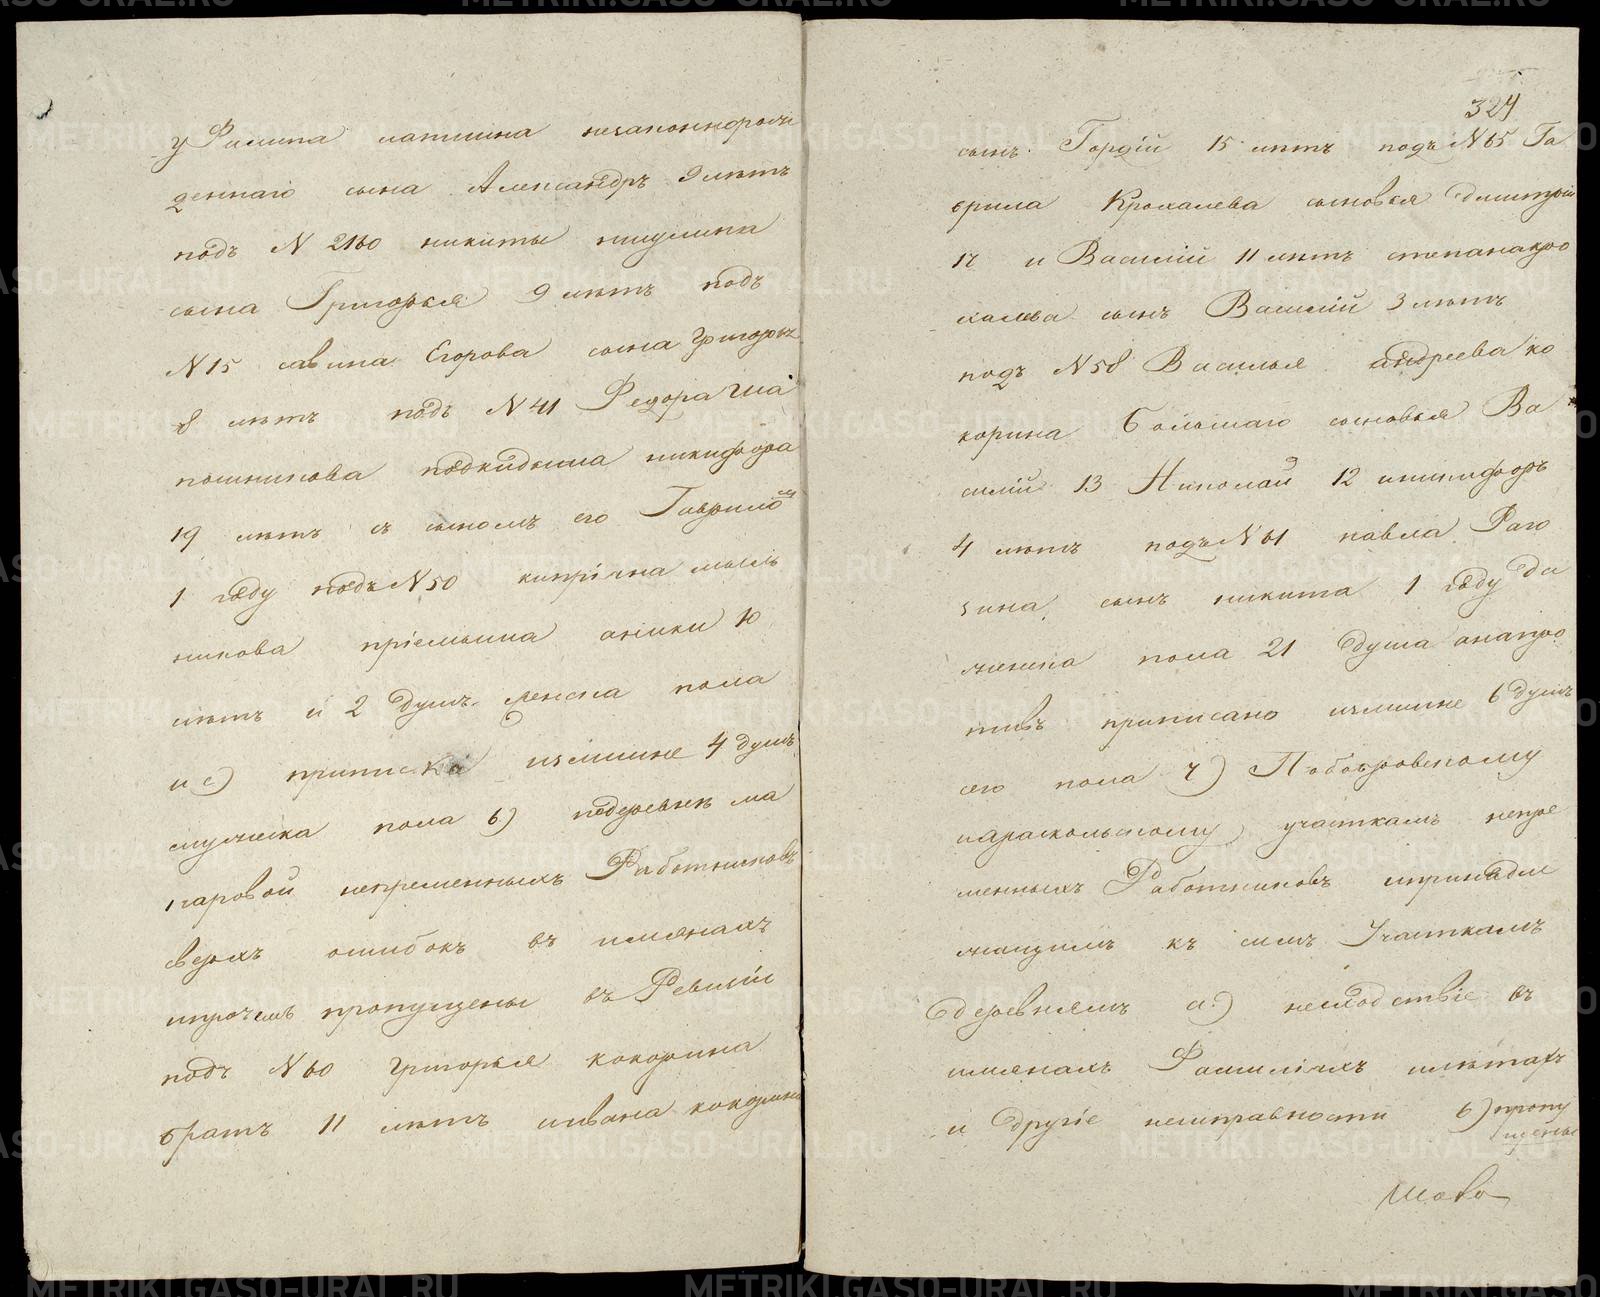 у Филипа латшина незаконнорож
деннаго сына Александръ 9 лѣтъ
подъ N 2160 никиты пищулина
сына Григорья 9 лѣтъ подъ
N 15 савина Егорова сына Григорья
8 лѣтъ подъ N 41 Федора Ша
пошникова подкидыша никифора
19 лѣтъ съ сыномъ его Гавриломъ
1 году подъ N 50 кипріяна мыль
никова пріемыша аники 10
лѣтъ и 2 душъ женска пола
и с) приписка излишне 4 душъ
мужеска пола 6) подеревнѣ ма
каровой непременныхъ Работниковъ
сверхъ ошибокъ въ имянахъ
ипрочемъ пропущены въ Ревизіи
подъ N 60 Григорья кокорина
братъ 11 лѣтъ ивана кокорина
324
сынъ Гордій 15 лѣтъ подъ N 65 Га
врила Крохалева сыновья Дмитрій
17 и Василій 11 лѣтъ степана кро
халева сынъ Василій 3 лѣтъ
подъ N 58 Василья андреева ко
корина Большаго сыновья Ва
силій 13 Николай 12 иникифоръ
4 лѣтъ подъ N 61 павла Раго
зина, сынъ никита 1 году Да
женска пола 21 Душа анапро
тивъ приписано излишне 6 душъ
сего пола 7) Нобобровскому
ицараскольскому участкамъ непре
менныхъ Работниковъ ипринадле
жащимъ къ симъ Участкамъ
Деревнямъ а) несходствіе въ
имянахъ Фамиліяхъ илѣтахъ
и Другіе неисправности б) пропу
щены